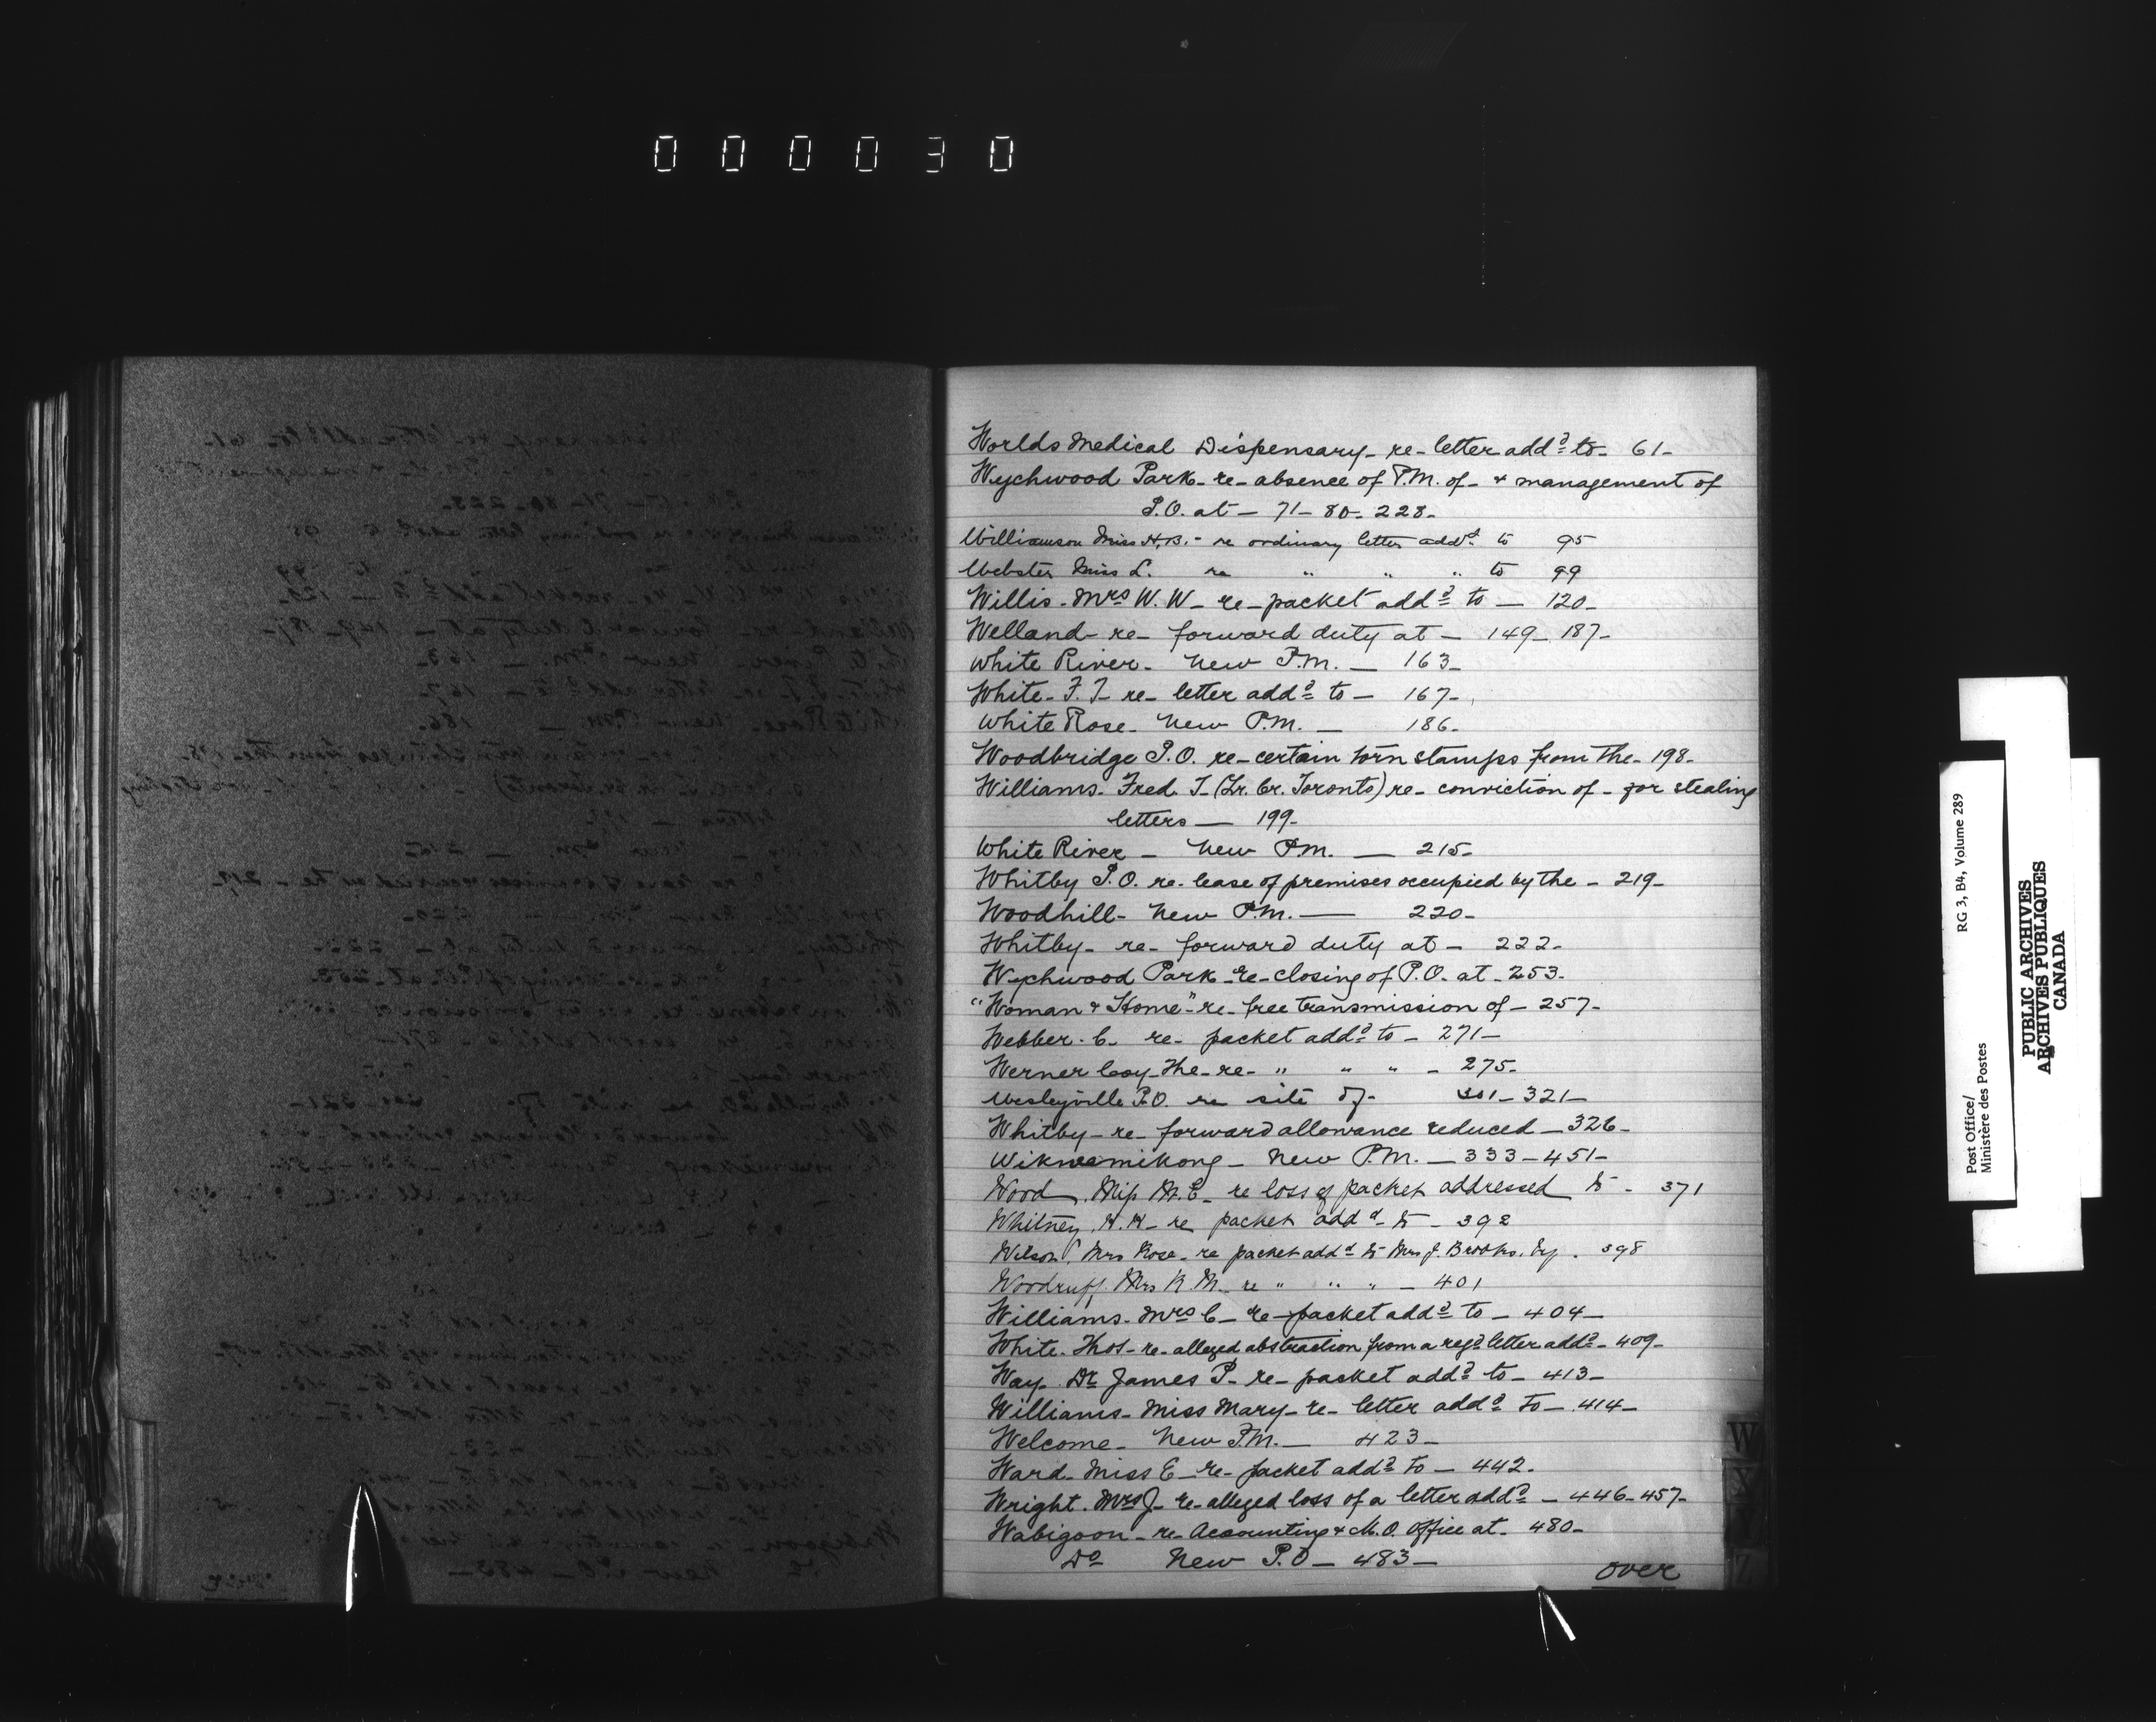 000030
Worlds Medical Dispensary - re - letter addd to - 61 -
Wychwood Park - re - absence of P.M. of - & management of
P.O. at - 71 - 80 - 228 -
Williamson Miss H.B. - re ordinary letter addd to 95
Webster Miss L. re " " " to 99
Willis - Mrs W. W - re - packet addd to - 120 -
Welland - re - forward duty at - 149 - 187 -
White River - New P.M. - 163 -
White - F. T - re - letter addd to - 167 -
White Rose - New P.M. - 186 -
Woodbridge P.O. re - certain torn stamps from the - 198 -
Williams - Fred. T - (Lr. Cr. Toronto) re - conviction of - for stealing
letters - 199 -
White River - New P.M. - 215 -
Whitby P.O. re - lease of premises occupied by the - 219 -
Woodhill - New P.M. - 220 -
Whitby - re - forward duty at - 222 -
Wychwood Park - re - closing of P.O. at - 253 -
"Woman & Home" - re - free transmission of - 257 -
Webber - C - re - packet addd to - 271 -
Werner Coy - The - re - " " " - 275 -
Wesleyville P.O. re site of - 301 - 321 -
Whitby - re - forward allowance reduced - 326 -
Wikwemikong - New P.M. - 333 - 451 -
Wood, Miss M. E - re loss of packet addressed to - 371
Whitney, H. H - re packet addd to - 392
Wilson, Mrs Rose - re packet addd to Mrs J. Brooks, 398
Woodruff, Mrs R. M - re " " " - 401
Williams - Mrs C - re - packet addd to - 404 -
White - Thos - re - alleged abstraction from a regd letter addd - 409 -
Way - Dr James P - re - packet addd to - 413 -
Williams - Miss Mary - re - letter addd to - 414 -
Welcome - New P.M. - 423 -
Ward - Miss E - re - packet addd to - 442 -
Wright - Mrs J - re - alleged loss of a letter addd - 446 - 457 -
Wabigoon - re - Accounting & M.O. Office at - 480 -
Do New P.O - 483 -
over
W
X
Z
Post Office/
Ministère des Postes
RG 3, B4, Volume 289
PUBLIC ARCHIVES
ARCHIVES PUBLIQUES
CANADA